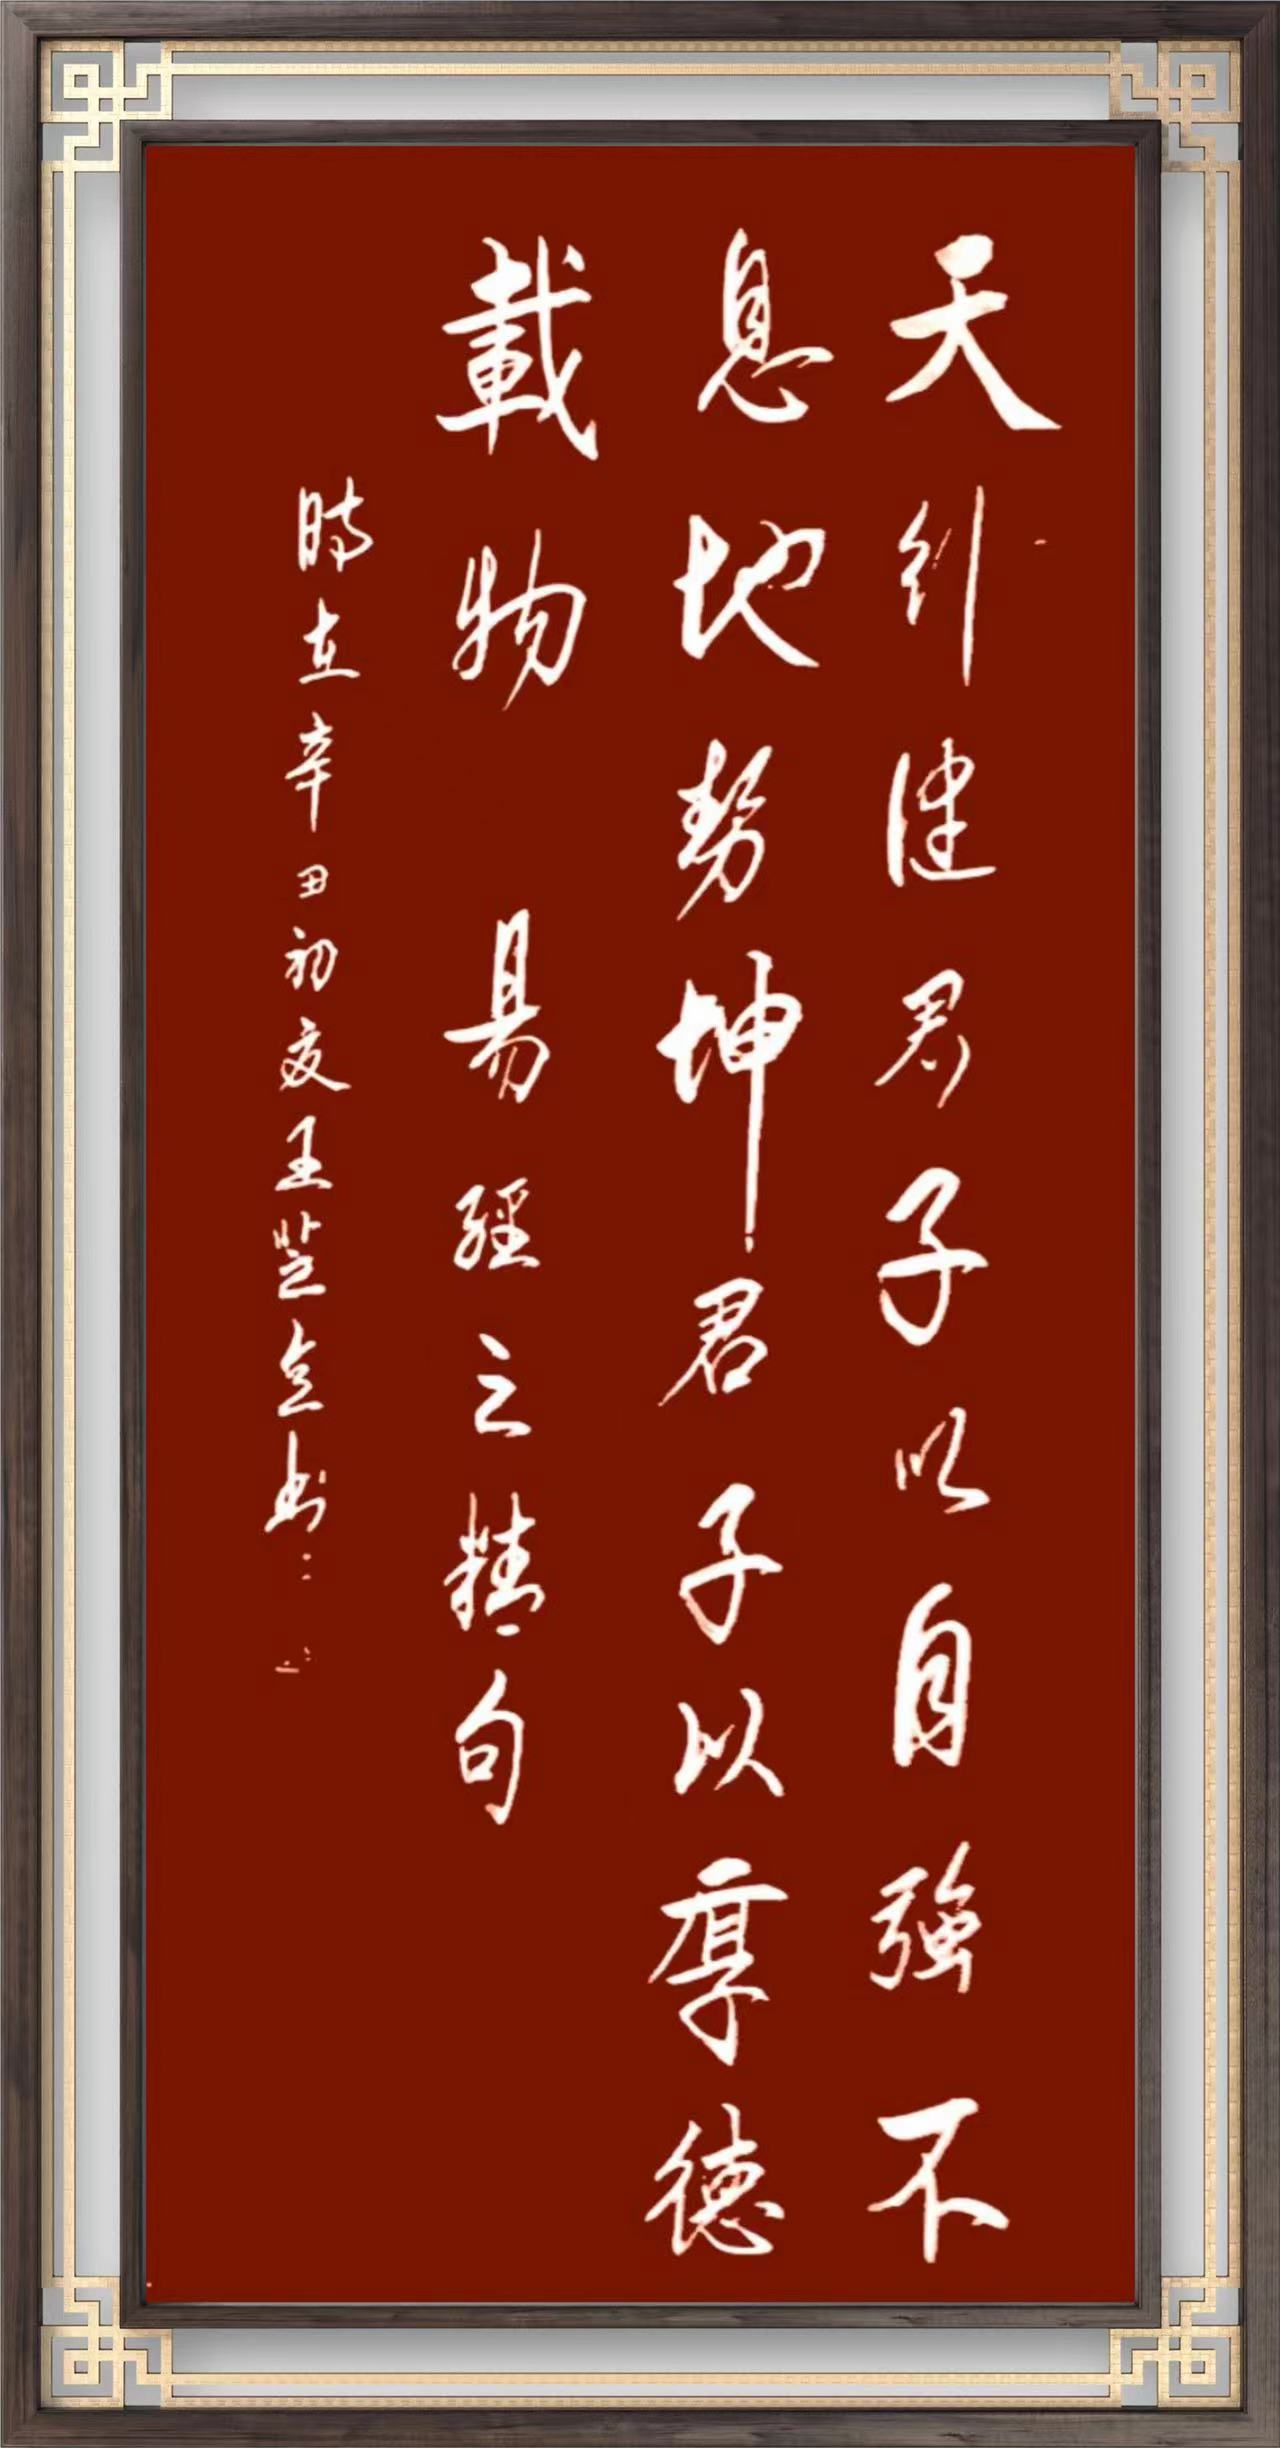 天行健君子以自強不
息地勢坤君子以厚德
載物 易經之精句
時在辛丑初夏王芝書